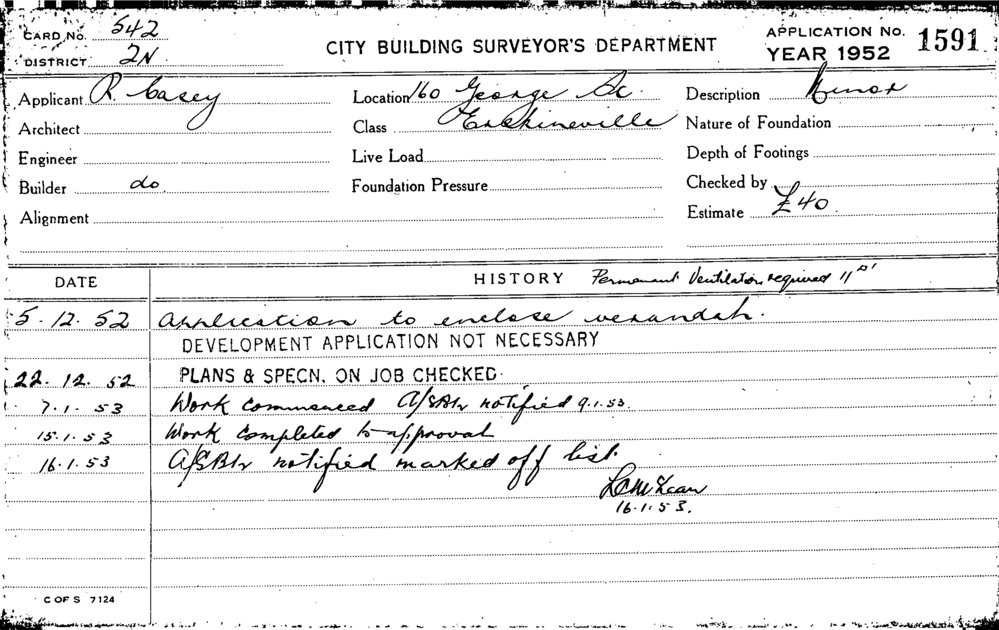 CARD No. 542
DISTRICT 2N
CITY BUILDING SURVEYOR'S DEPARTMENT
APPLICATION No. 1591
YEAR 1952
Applicant R. Casey
Location 160 George St.
Description Minor
Architect
Class Erskineville
Nature of Foundation
Engineer
Live Load
Depth of Footings
Builder do
Foundation Pressure
Checked by
Alignment
Estimate £40.
DATE
HISTORY Permanent Ventilation required 11
5.12.52 Application to enclose verandah.
DEVELOPMENT APPLICATION NOT NECESSARY
22.12.52 PLANS & SPECN. ON JOB CHECKED.
7.1.53 Work commenced notified 9.1.53.
15.1.53 Work completed to approval
16.1.53 notified marked off list.
16.1.53.
C OF S 7124